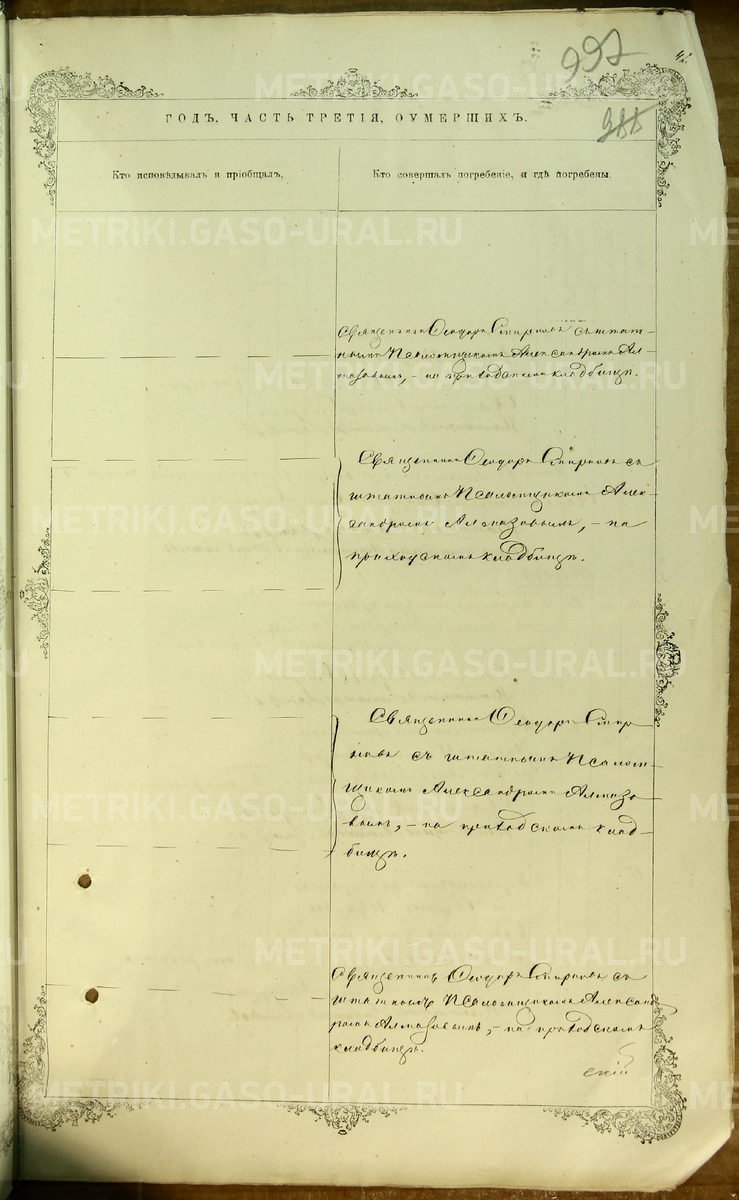 992
42
988
ГОДЪ, ЧАСТЬ ТРЕТІЯ, О УМЕРШИХЪ.
Кто исповѣдывалъ и пріобщалъ,
Кто совершалъ погребеніе, и гдѣ погребены.
METRIKI.GASO-URAL.RU
Священникъ Ѳеодоръ Смирновъ съ штат-
нымъ Псаломщикомъ Александромъ Ал-
мазовымъ, – на приходскомъ кладбищѣ.
Священникъ Ѳеодоръ Смирновъ съ
штатнымъ Псаломщикомъ Алек-
сандромъ Алмазовымъ, – на
приходскомъ кладбищѣ.
Священникъ Ѳеодоръ Смир-
новъ съ штатнымъ Псалом-
щикомъ Александромъ Алмазо-
вымъ, – на приходскомъ клад-
бищѣ.
Священникъ Ѳеодоръ Смирновъ съ
штатнымъ Псаломщикомъ Алексан-
дромъ Алмазовымъ, – на приходскомъ
кладбищѣ.
скій